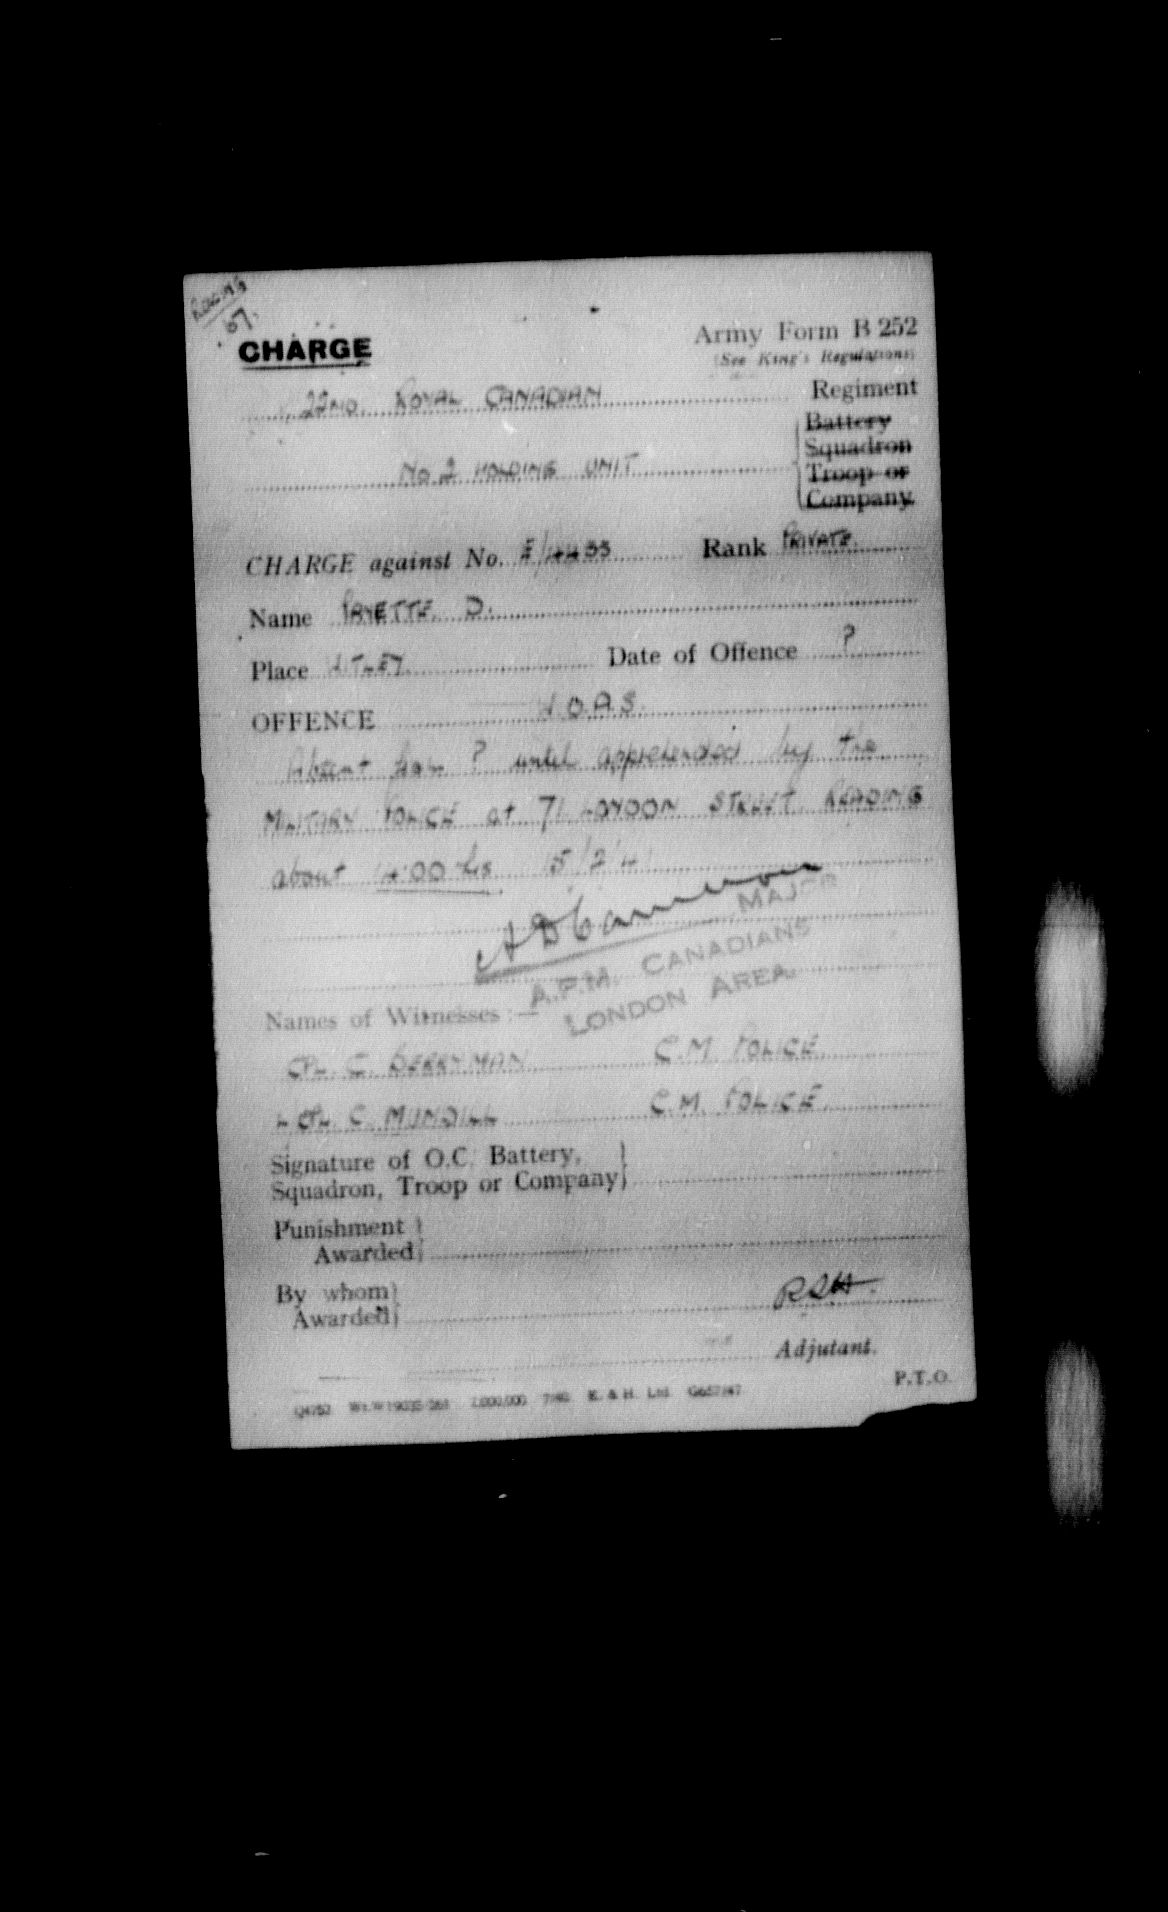 Reading
67.
CHARGE
Army Form B 252
(See King's Regulations)
22ND ROYAL CANADIAN Regiment
Battery
Squadron
No 2 HOLDING UNIT
Troop or
Company.
CHARGE against No. Rank PRIVATE.
Name PAYETTE D.
Place WITLEY Date of Offence ?
OFFENCE W.O.A.S.
Absent from ? until apprehended by the
MILITARY POLICE at 71 LONDON STREET READING
about 00 hrs 15/2/41
A D Cameron MAJOR
A.P.M. CANADIANS
LONDON AREA.
Names of Witnesses :—
CPL. C. BERRYMAN C.M. POLICE.
L/CPL C. MUNDILL C.M. POLICE.
Signature of O.C. Battery,
Squadron, Troop or Company
Punishment
Awarded
By whom
Awarded
Adjutant.
P.T.O.
K. & H. Ltd.